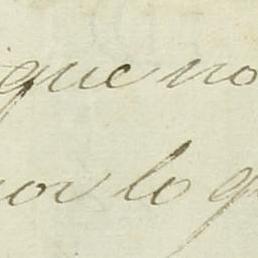 que no
por lo q